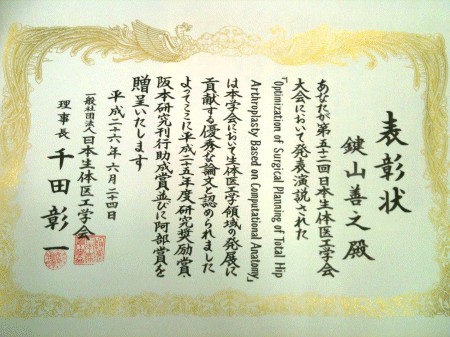 表彰状
鍵山善之殿
あなたが第五十二回日本生体医工学会
大会において発表演説された
「Optimization of Surgical Planning of Total Hip
Arthroplasty Based on Computational Anatomy」
は本学会において生体医工学領域の発展に
貢献する優秀な論文と認められました
よってここに平成二十五年度研究奨励賞・
阪本研究刊行助成賞並びに阿部賞を
贈呈いたします
平成二十六年六月二十四日
一般社団法人日本生体医工学会
理事長 千田彰一